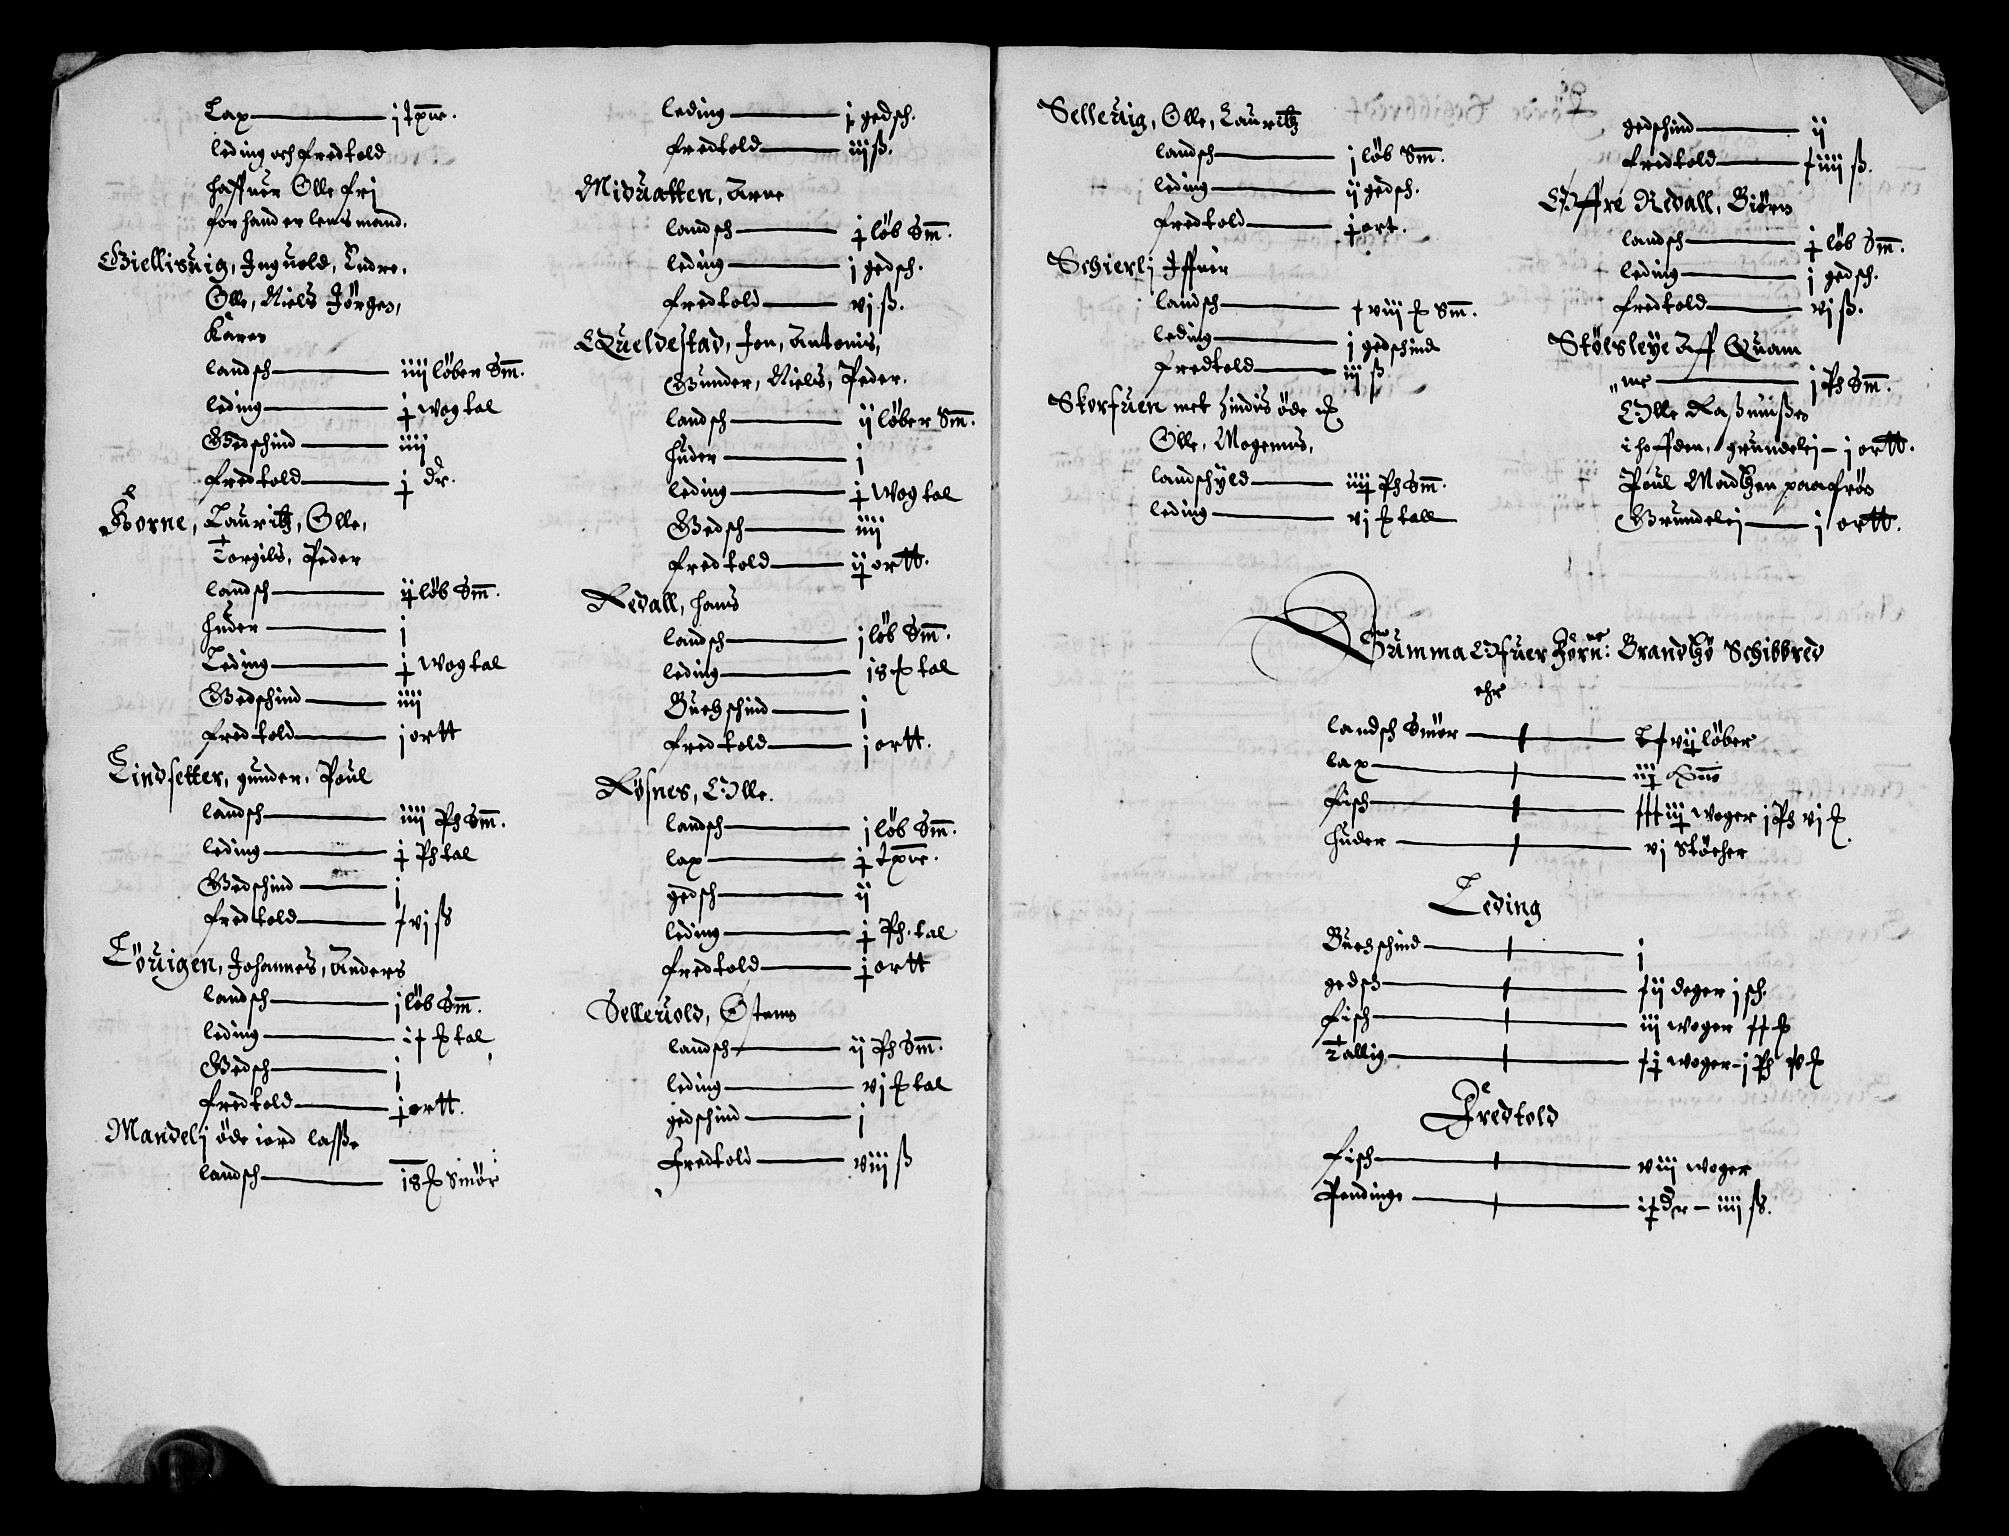 Lax — j txnr.
leding och fredtold
haffuer Olle frj
forhand er lensmand.
Giellisuig, Inguold, Endre,
Olle, Niels Jörgen,
Karen
landsch — iiij löber Sm.
leding — j wog tal
Gedschind — iiij
fredtold — j dr.
Horne, Lauritz, Olle,
Torgils, Peder
landsch — ij löb Sm.
Huder — j
Leding — j wog tal
Gedschind — iiij
fredtold — j ortt
Lindsetter, gunder, Poul
landsch — iiij Ph Sm.
leding — j Ph tal
Gedschind — j
fredtold — x vj ß
Löuigen, Johannes, Anders
landsch — j löb Sm.
leding — tal
Gedsch — j
fredtold — j ortt.
Mandelj öde iord lasße
landsch — 18 Smör
leding — j gedsch.
fredtold — iiij ß.
Miduatten, Arne
landsch — j löb Sm.
leding — j gedsch.
fredtold — vj ß.
Queldestad, Jon, Antonis,
Gunder, Niels, Peder.
landsch — ij löber Sm.
Huder — j
leding — j wog tal
Gedsch — iiij
fredtold — ij ortt.
Redall, Hans
landsch — j löb Sm.
leding — 18 tal
Buchschind — j
fredtold — j ortt.
Rösnes, Olle.
landsch — j löb Sm.
lax — j txnr.
gedsch — ij
leding — j Ph. tal
fredtold — j ortt
Selleuold, Stens
landsch — ij Ph Sm.
leding — vj tal
gedschind — j
Fredtold — viij ß
Selleuig, Olle, Lauritz
landsch — j löb Sm.
leding — ij gedsch.
fredtold — j ort.
Schierlj Iffuer
landsch — x viij Sm.
leding — j gedschind
fredtold — iij ß
Skorfuen met Hindis öde
Olle, Mogenns,
landschyld — iiij Ph Sm.
leding — vj tall
gedschind — ij
fredtold — x iiij ß.
Öffre Redall, Biörn
landsch — j löb Sm.
leding — j gedsch.
fredtold — vj ß.
Stölsleye Aff Quam
me — j Ph Sm.
Olle Rasmußen
i hoffden, grundelej — j ortt.
Poul Madtzen paa frön
Grundelej — j ortt.
Summa Ofuer förne: Brandtzö Schibbred
ehr
landsch Smör — L x vij löber
lax — iij
fisch — xxx iij woger j Ph vj
Huder — vj Stöcher
Leding
Buchschind — j
gedsch — x ij deger j sch.
fisch — iij woger xx
Tallig — x j woger – j Ph
Fredtold
fisch — viij woger
Pendinge — ix dr – iiij ß.